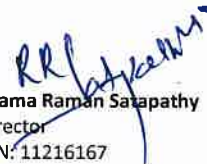 RR Satpathy
ama Raman Satapathy
rector
N: 11216167